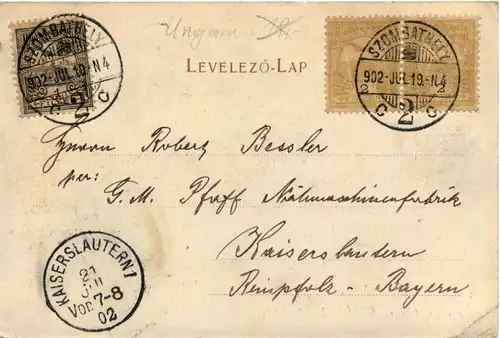 Ungarn
SZOMBATHELY
902-JUL.19.-N4
C 2 C
LEVELEZŐ-LAP
SZOMBATHELY
902-JUL.19.-N.4
2 2
C 2 C
Herrn Robert Bessler
per: G. M. Pfaff Nähmaschinenfabrik
Kaiserslautern
Reinpfalz - Bayern
KAISERSLAUTERN 1
21
JUL
Vor 7-8
02